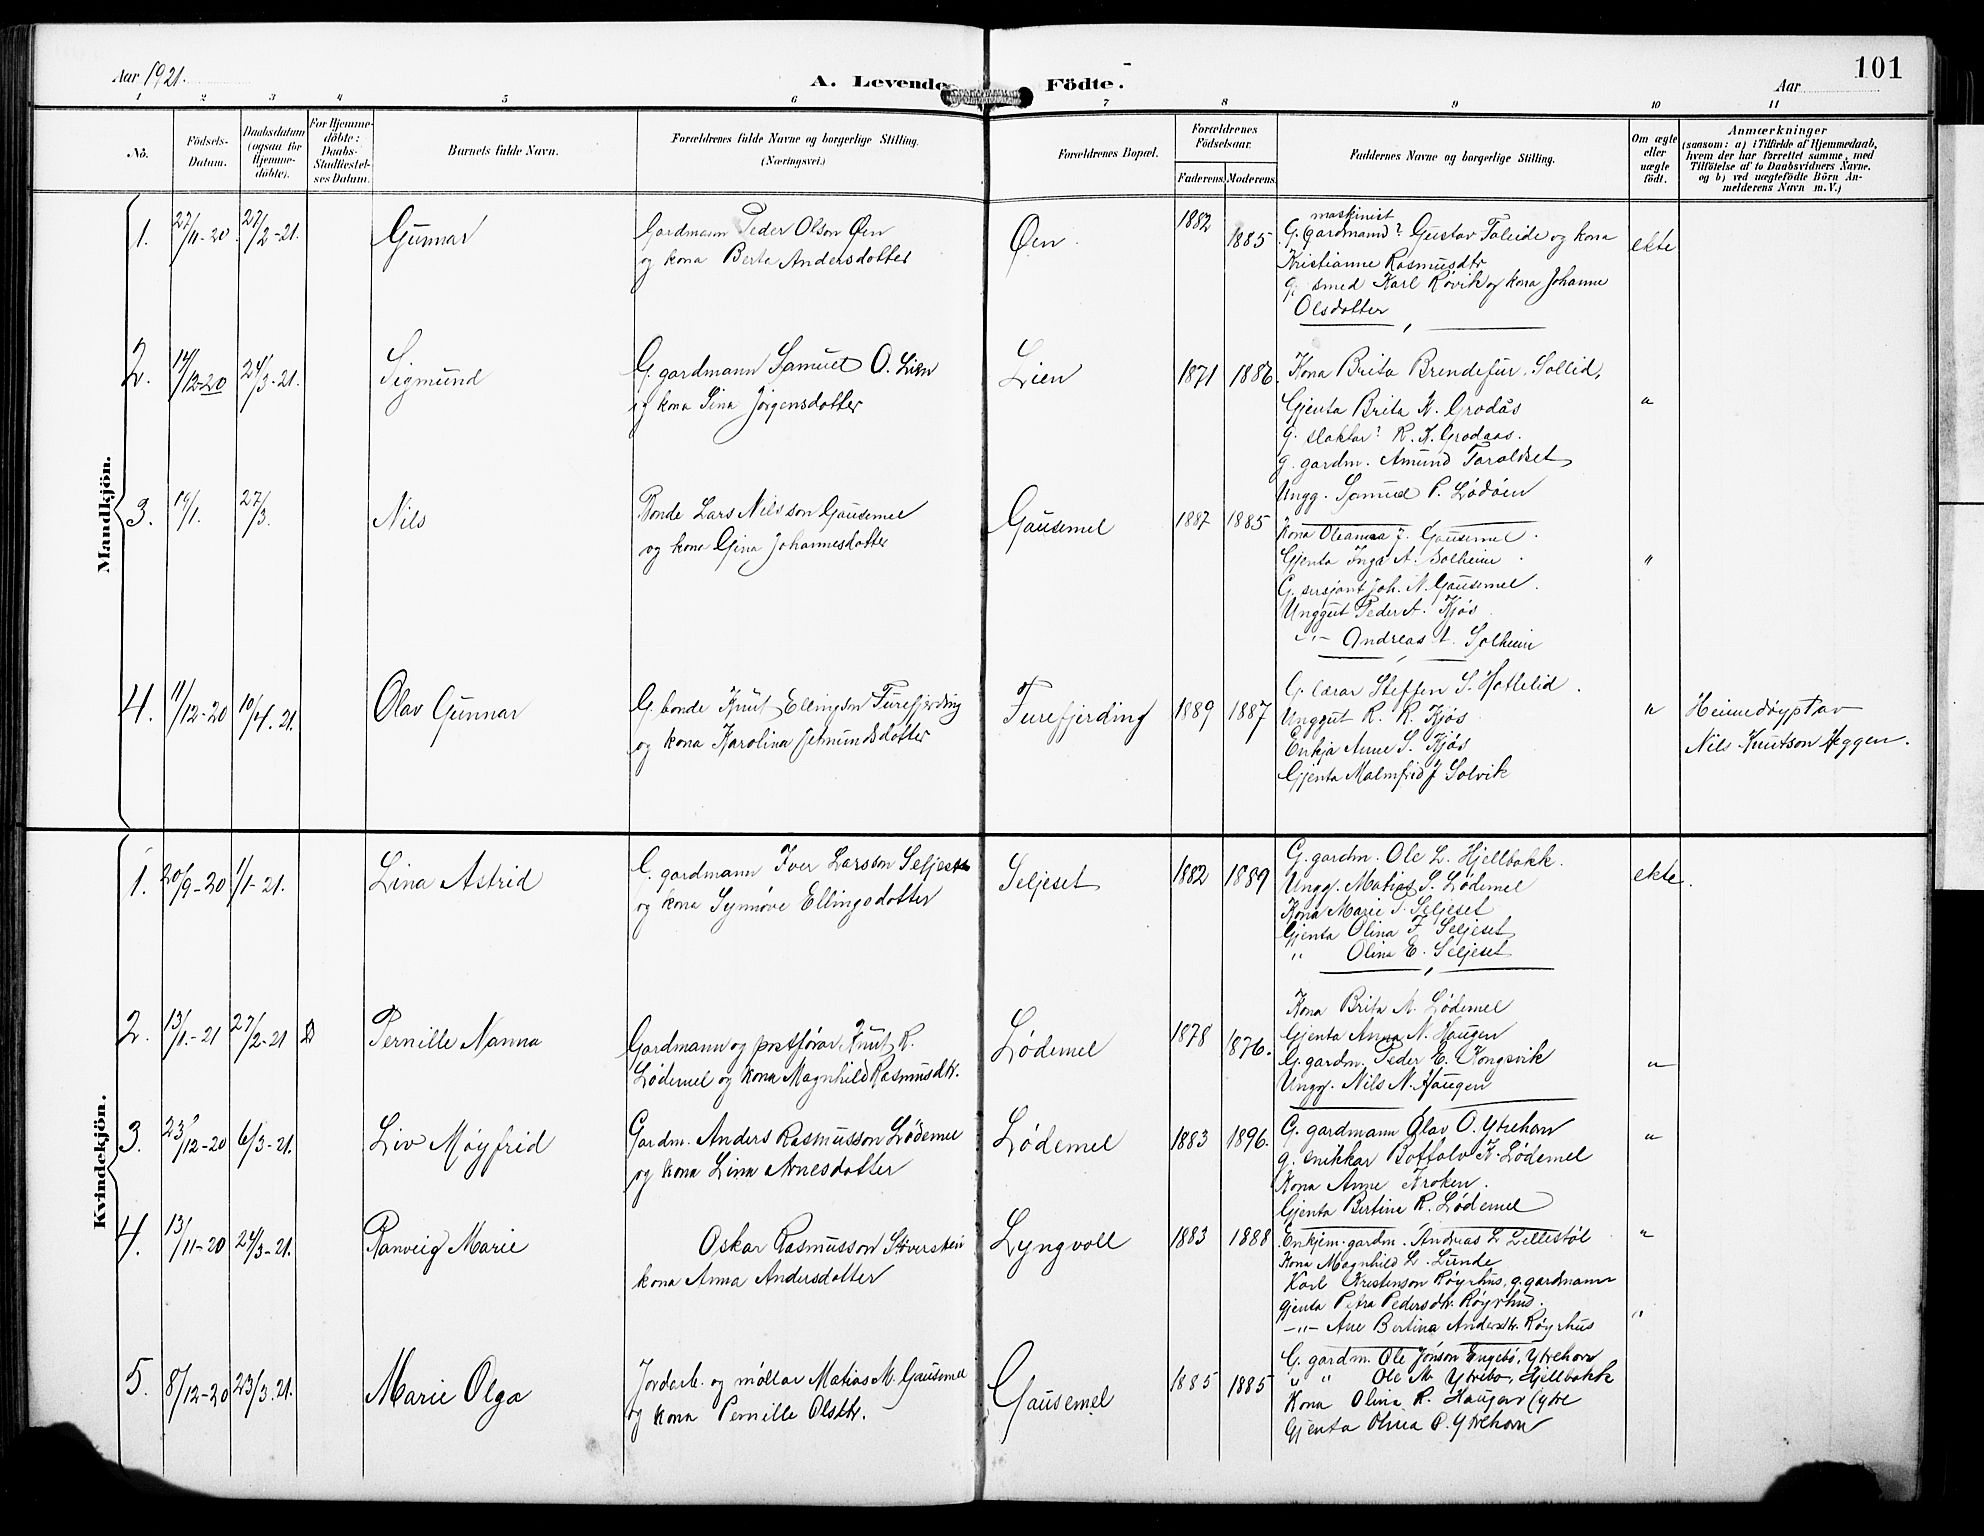 Aar 1921.
A. Levende Födte.
Aar
101
1 2 3 4 5 6 7 8 9 10 11
No.
Födsels-
Datum.
Daabsdatum
(ogsaa for
Hjemme-
döbte).
For Hjemme-
döbte:
Daabs-
Stadfæstel-
ses Datum.
Barnets fulde Navn.
Forældrenes fulde Navne og borgerlige Stilling.
(Næringsvei.)
Forældrenes Bopæl.
Forældrenes
Födselsaar.
Faderens. Moderens.
Faddernes Navne og borgerlige Stilling.
Om ægte
eller
uægte
födt.
Anmærkninger
(saasom: a) i Tilfælde af Hjemmedaab,
hvem der har forrettet samme, med
Tilföielse af to Daabsvidners Navne.
og b) ved uægtefödte Börn An-
melderens Navn m. V.)
Mandkjön.
1. 27/11-20. 27/2-21. Gunnar
Gardmann Peder Olson Øen
og kona Berta Andersdotter
Øen
1882 1885
maskinist
G. gardmann? Gustav Taleide og kona
Kristianne Rasmusdtr
g. smed Karl Røvik og kona Johanne
Olsdotter
ekte
2. 14/12-20 24/3-21. Sigmund
G. gardmann Samuel O. Lien
og kona Sina Jørgensdotter
Lien
1871 1886.
Kona Brita Brendefur, Sollid,
Gjenta Brita K. Grodås
g. slaktar? R. K. Grodaas.
g. gardm. Amund Taraldset
Ungg. Samuel P. Lødøen
"
3. 19/1. 27/3. Nils
Bonde Lars Nilsson Gausemel
og kona Gina Johannesdotter
Gausemel
1887 1885
Kona Oleanna J. Gausemel.
Gjenta Inga A. Solheim.
G. sersjant Joh. N. Gausemel.
Unggut Peder A. Kjøs
-"- Andreas A. Solheim
"
4. 11/12-20 10/4-21. Olav Gunnar
G. bonde Knut Ellingson Furefjerding
og kona Karolina Jetmundsdotter
Furefjerding
1889 1887
G. lærar Steffen S. Hatlelid.
Unggut R. R. Kjøs
Enkja Anne S. Kjøs
Gjenta Malmfrid J Solvik
"
Heimedøypt av
Nils Knutson Heggen.
Kvindekjön.
1. 20/9-20 1/1-21. Lina Astrid
G. gardmann Iver Larsson Seljeset
og kona Synnøve Ellingsdotter
Seljeset
1882 1889
G. gardm. Ole L. Hjellbakk.
Ungg. Matias S. Lødemel
Kona Marie S. Seljeset
Gjenta Olina F Seljeset
" Olina E. Seljeset
ekte.
2. 13/1-21 27/2-21 Pernille Nanna
Gardmann og postførar Knut R.
Lødemel og kona Magnhild Rasmusdtr.
Lødemel
1878 1876.
Kona Brita M. Lødemel
Gjenta Anna N. Haugen
G. gardm. Peder E. Kongsvik
Ungg. Nils N. Haugen
"
3. 23/12-20 6/3-21. Liv Møyfrid
Gardm. Anders Rasmusson Lødemel
og kona Lina Arnesdotter
Lødemel
1883 1896.
G. gardmann Olav O. Ytrehorn
g. snikkar Bottolv K. Lødemel
Kona Anne Kroken.
Gjenta Bertine R. Lødemel
"
4. 13/11-20 24/3-21. Ranveig Marie
Oskar Rasmusson Støverstein
kona Anna Andersdotter
Lyngvoll
1883 1888
Enkjem. gardm. Andreas L Lillestøl
Kona Magnhild L. Lunde
Karl Kristenson Røyrhus, g. gardmann
gjenta Petra Pedersdtr. Røyrhus.
-"- Ane Bertina Andersdtr. Røyrhus
"
5. 8/12-20 23/3.21. Marie Olga
Jordarb. og møllar Matias M. Gausemel
og kona Pernille Olsdtr.
Gausemel
1885 1885
G. gardm. Ole Jonson Engebø, Ytrehorn
" " Ole M. Ytrebo, Hjellbakk
Kona Olina R. Haugen (ytre
Gjenta Olina O. Ytrehorn
"